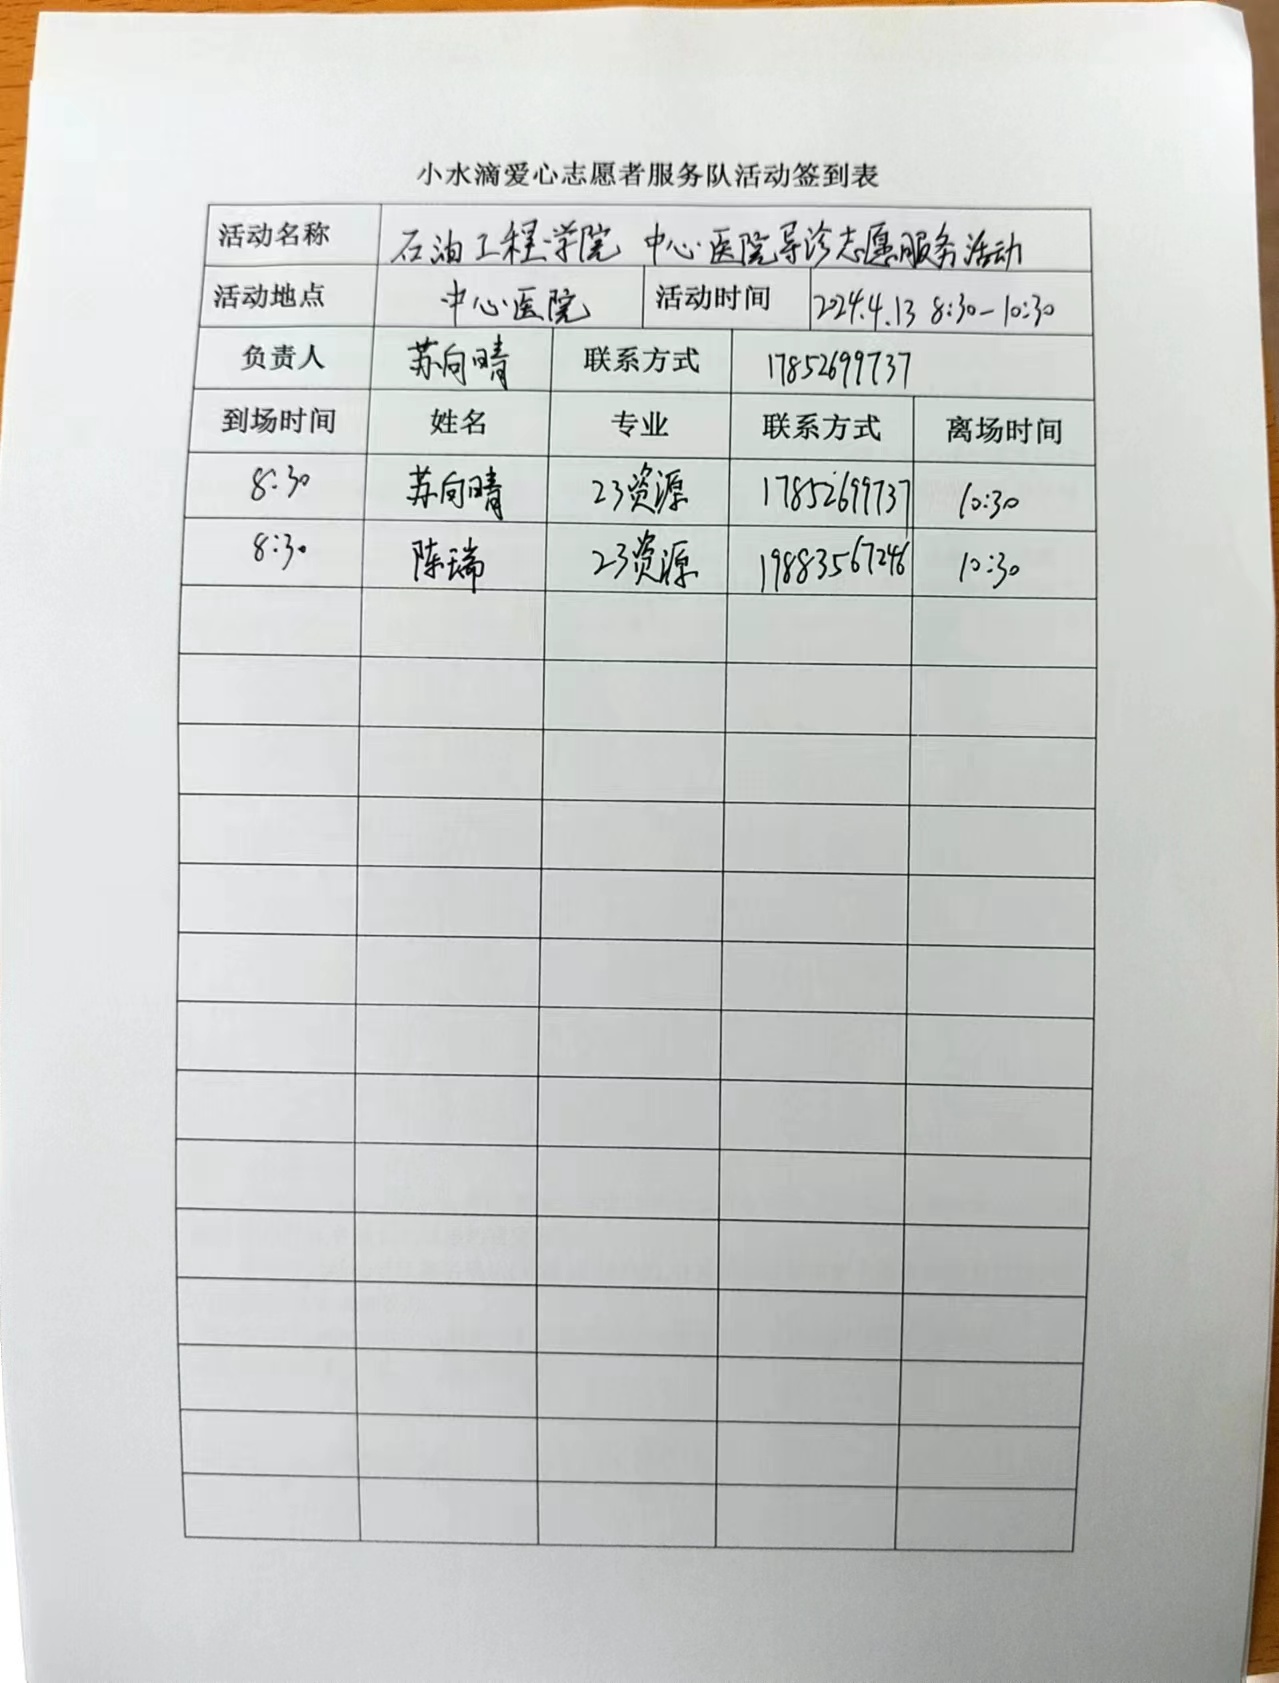 小水滴爱心志愿者服务队活动签到表
活动名称 石油工程学院 中心医院导诊志愿服务活动
活动地点 中心医院 活动时间 2024.4.13 8:30-10:30
负责人 苏向晴 联系方式 17852699737
到场时间 姓名 专业 联系方式 离场时间
8:30 苏向晴 23资源 17852699737 10:30
8:30 陈瑞 23资源 19883567246 10:30